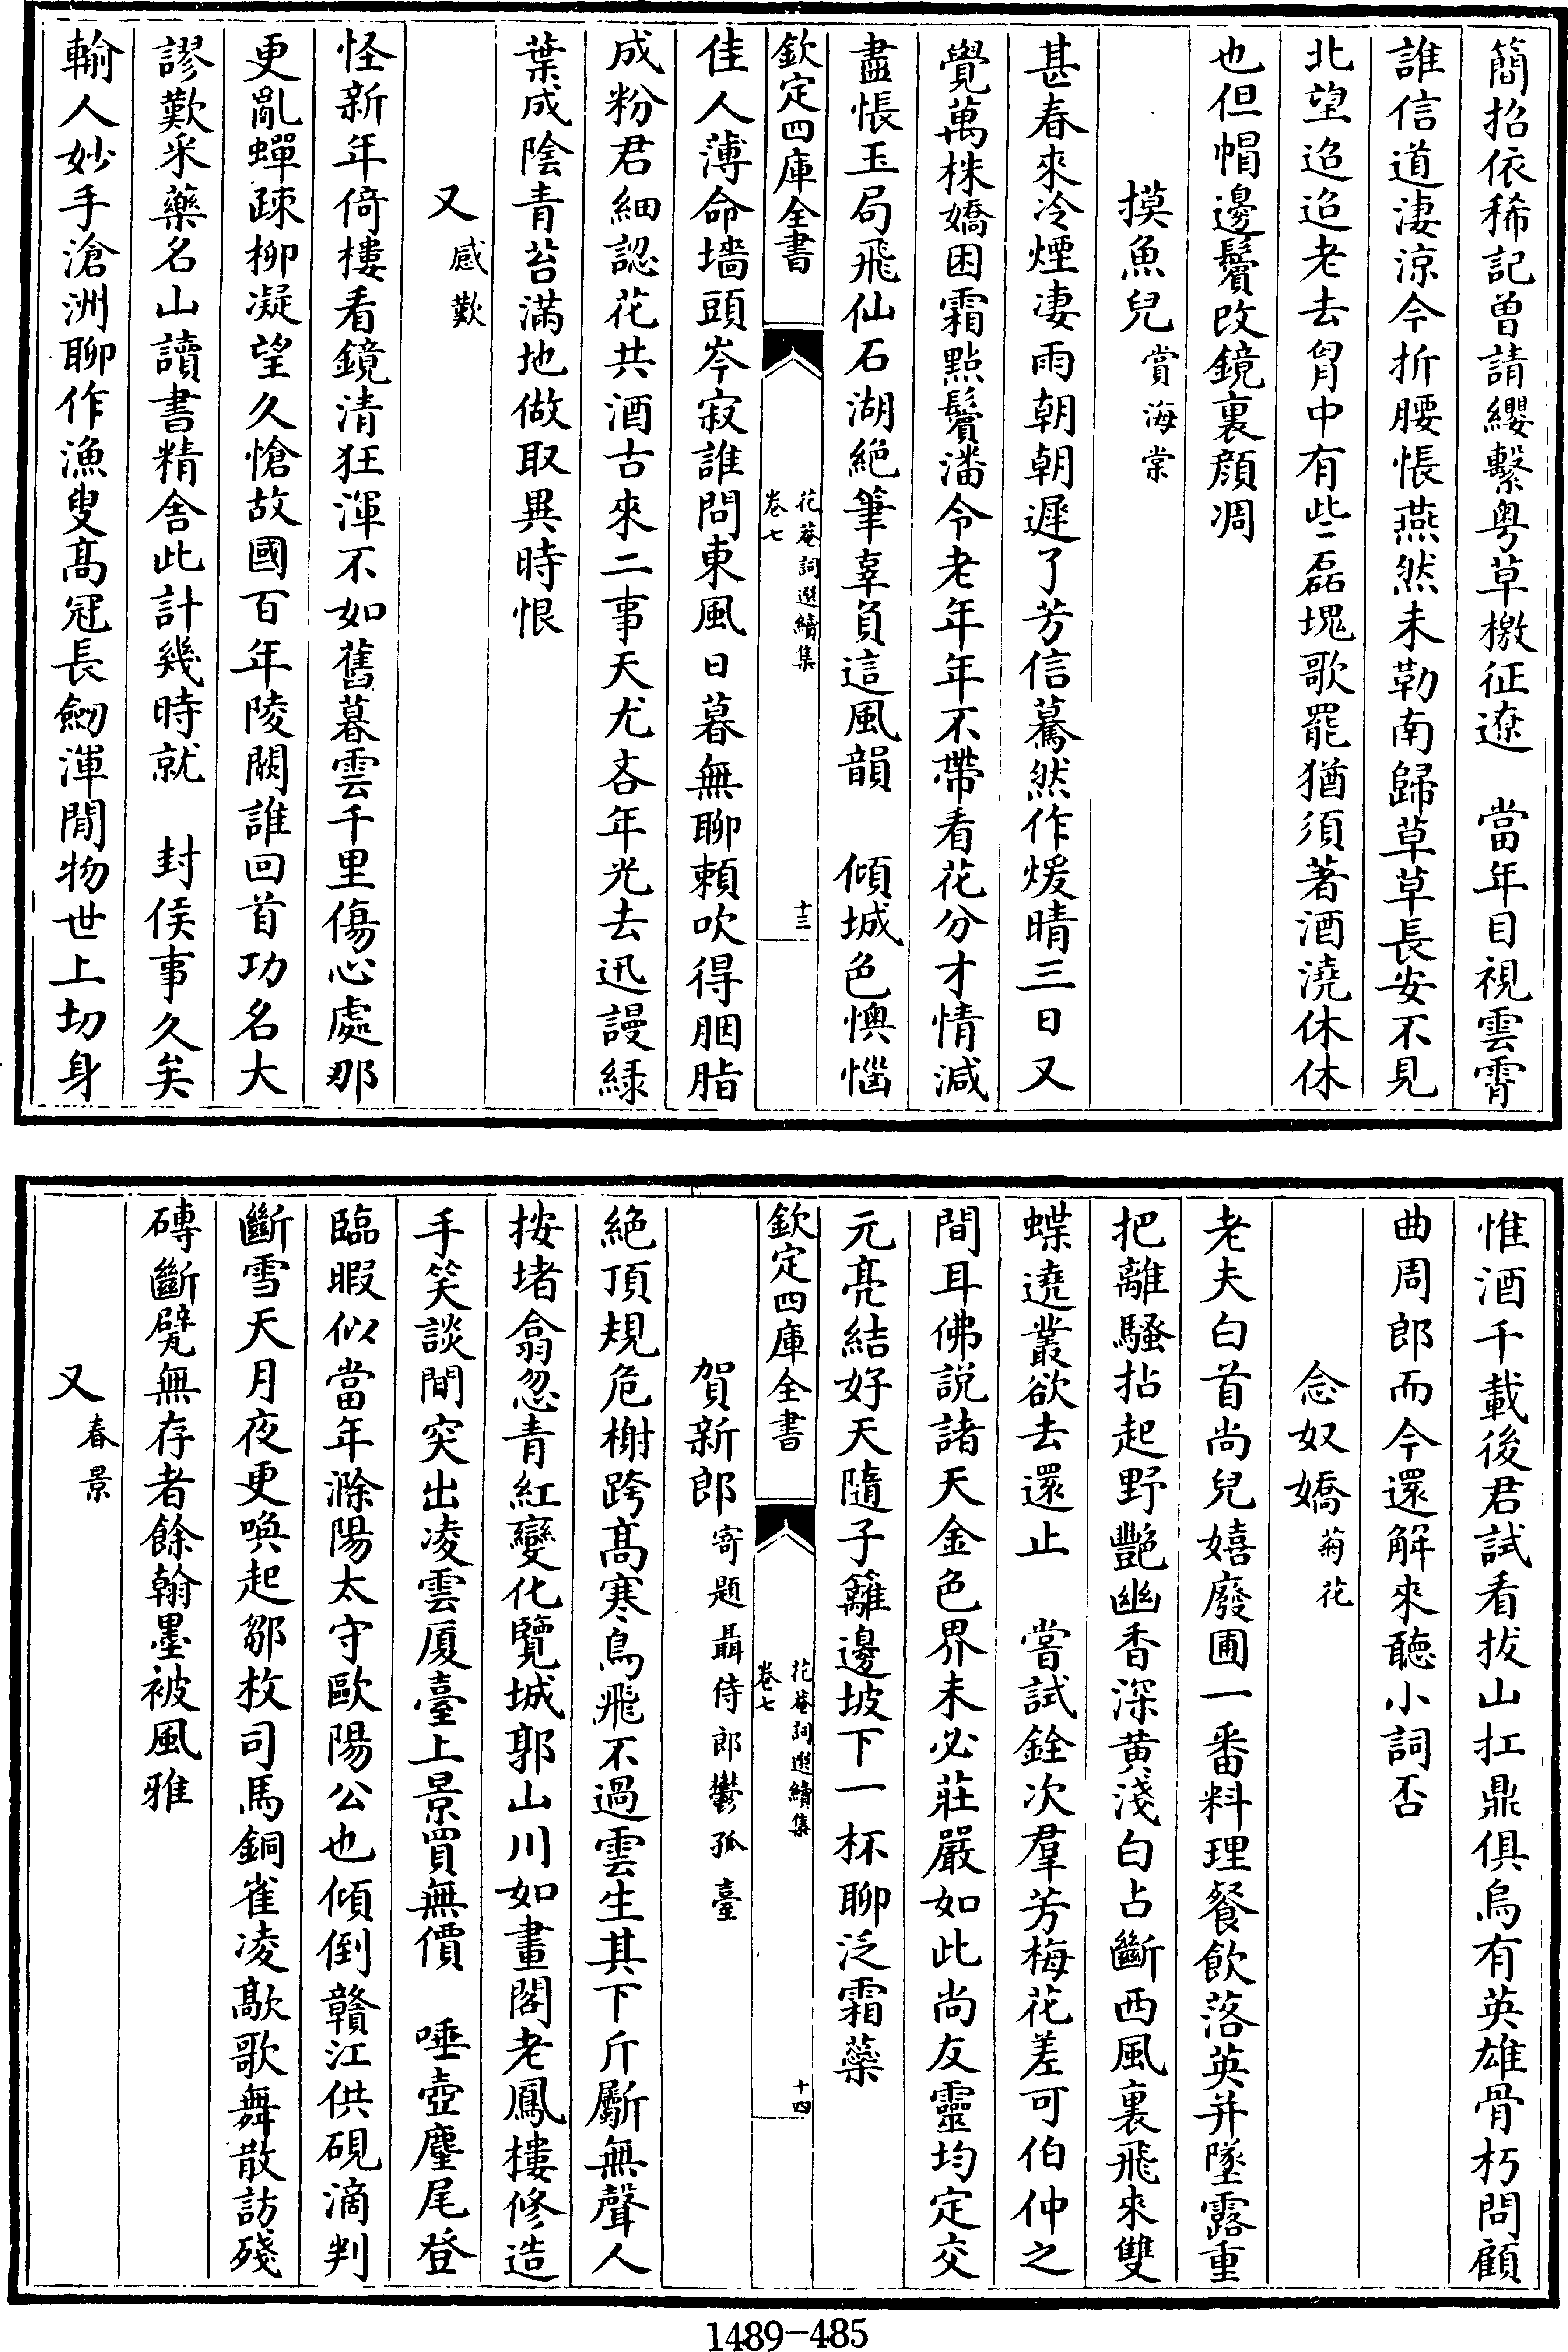 簡招依稀記曾請纓繫粤草檄征遼　當年目視雲霄
誰信道淒涼今折腰悵燕然未勒南歸草草長安不見
北望迢迢老去胷中有些磊塊歌罷猶須著酒澆休休
也但帽邊鬢改鏡裏顔凋
摸魚兒賞海棠
甚春來冷煙凄雨朝朝遲了芳信驀然作煖晴三日又
覺萬株嬌困霜點鬢潘令老年年不帶看花分才情減
盡悵玉局飛仙石湖絶筆辜負這風韻　傾城色懊惱
欽定四庫全書
花菴詞選續集
卷七
十三
佳人薄命墻頭岑寂誰問東風日暮無聊頼吹得胭脂
成粉君細認花共酒古來二事天尤吝年光去迅謾緑
葉成陰青苔滿地做取異時恨
又感歎
怪新年倚樓看鏡清狂渾不如舊暮雲千里傷心處那
更亂蟬疎柳凝望久愴故國百年陵闕誰回首功名大
謬歎采藥名山讀書精舍此計幾時就　封侯事久矣
輸人妙手滄洲聊作漁叟髙冠長劒渾閒物世上切身
惟酒千載後君試看拔山扛鼎俱烏有英雄骨朽問顧
曲周郎而今還解來聽小詞否
念奴嬌菊花
老夫白首尚兒嬉廢圃一番料理餐飲落英并墜露重
把離騷拈起野艷幽香深黄淺白占斷西風裏飛來雙
蝶遶叢欲去還止　嘗試銓次羣芳梅花差可伯仲之
間耳佛説諸天金色界未必莊嚴如此尚友靈均定交
元亮結好天隨子籬邊坡下一杯聊泛霜蘂
欽定四庫全書
花菴詞選續集
卷七
十四
賀新郎寄題聶侍郎鬱孤臺
絶頂規危榭跨髙寒鳥飛不過雲生其下斤斸無聲人
按堵翕忽青紅變化覽城郭山川如畫閣老鳳樓修造
手笑談間突出凌雲厦臺上景買無價　唾壺麈尾登
臨暇似當年滁陽太守歐陽公也傾倒贛江供硯滴判
斷雪天月夜更喚起鄒枚司馬銅雀凌歊歌舞散訪殘
磚斷甓無存者餘翰墨被風雅
又春景
1489—485